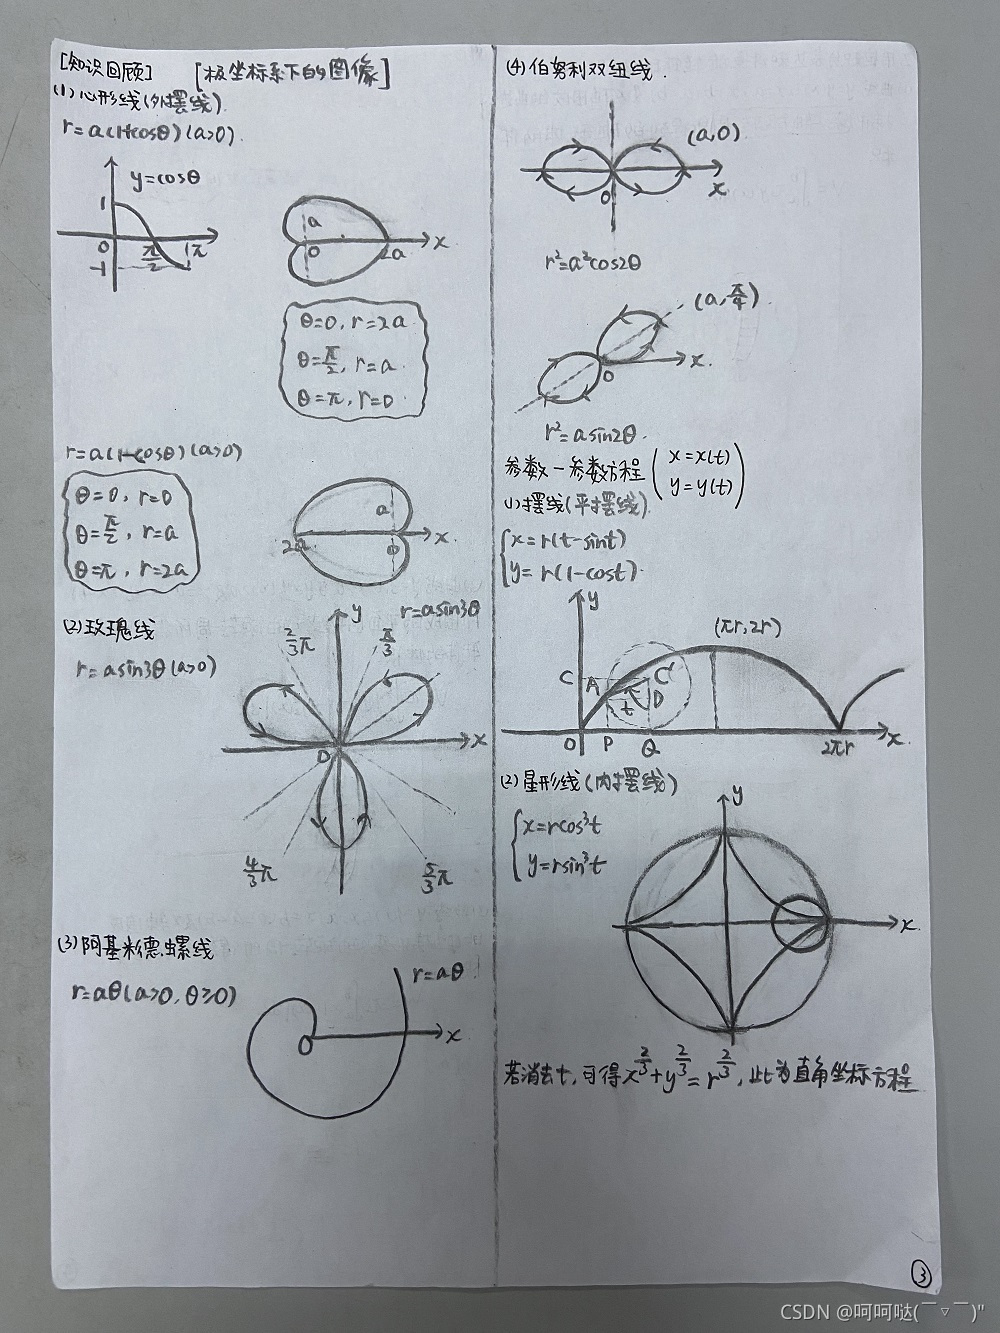 [知识回顾] [极坐标系下的图像]
(1)心形线(外摆线).
r=a(1+cosθ)(a>0).
y=cosθ
1
0
π/2
π
-1
a
0
2a
x
θ=0, r=2a.
θ=π/2, r=a.
θ=π, r=0
r=a(1-cosθ)(a>0)
θ=0, r=0
θ=π/2, r=a
θ=π, r=2a
a
2a
0
x
(2)玫瑰线
r=asin3θ(a>0)
y
r=asin3θ
2/3π
π/3
0
x
4/3π
5/3π
(3)阿基米德螺线
r=aθ(a>0, θ≥0)
r=aθ
0
x
(4)伯努利双纽线.
(a,0)
0
x
r²=a²cos2θ
(a, π/4)
0
x.
r²=asin2θ.
参数—参数方程(x=x(t)
y=y(t))
(1)摆线(平摆线).
{x=r(t-sint)
y=r(1-cost).
y
(πr,2r)
C
A
C'
t
D
0
P
Q
2πr
x.
(2)星形线(内摆线)
{x=rcos³t
y=rsin³t
y
x.
若消去t,可得x^(2/3)+y^(2/3)=r^(2/3),此为直角坐标方程
③
CSDN @呵呵哒(￣▽￣)"